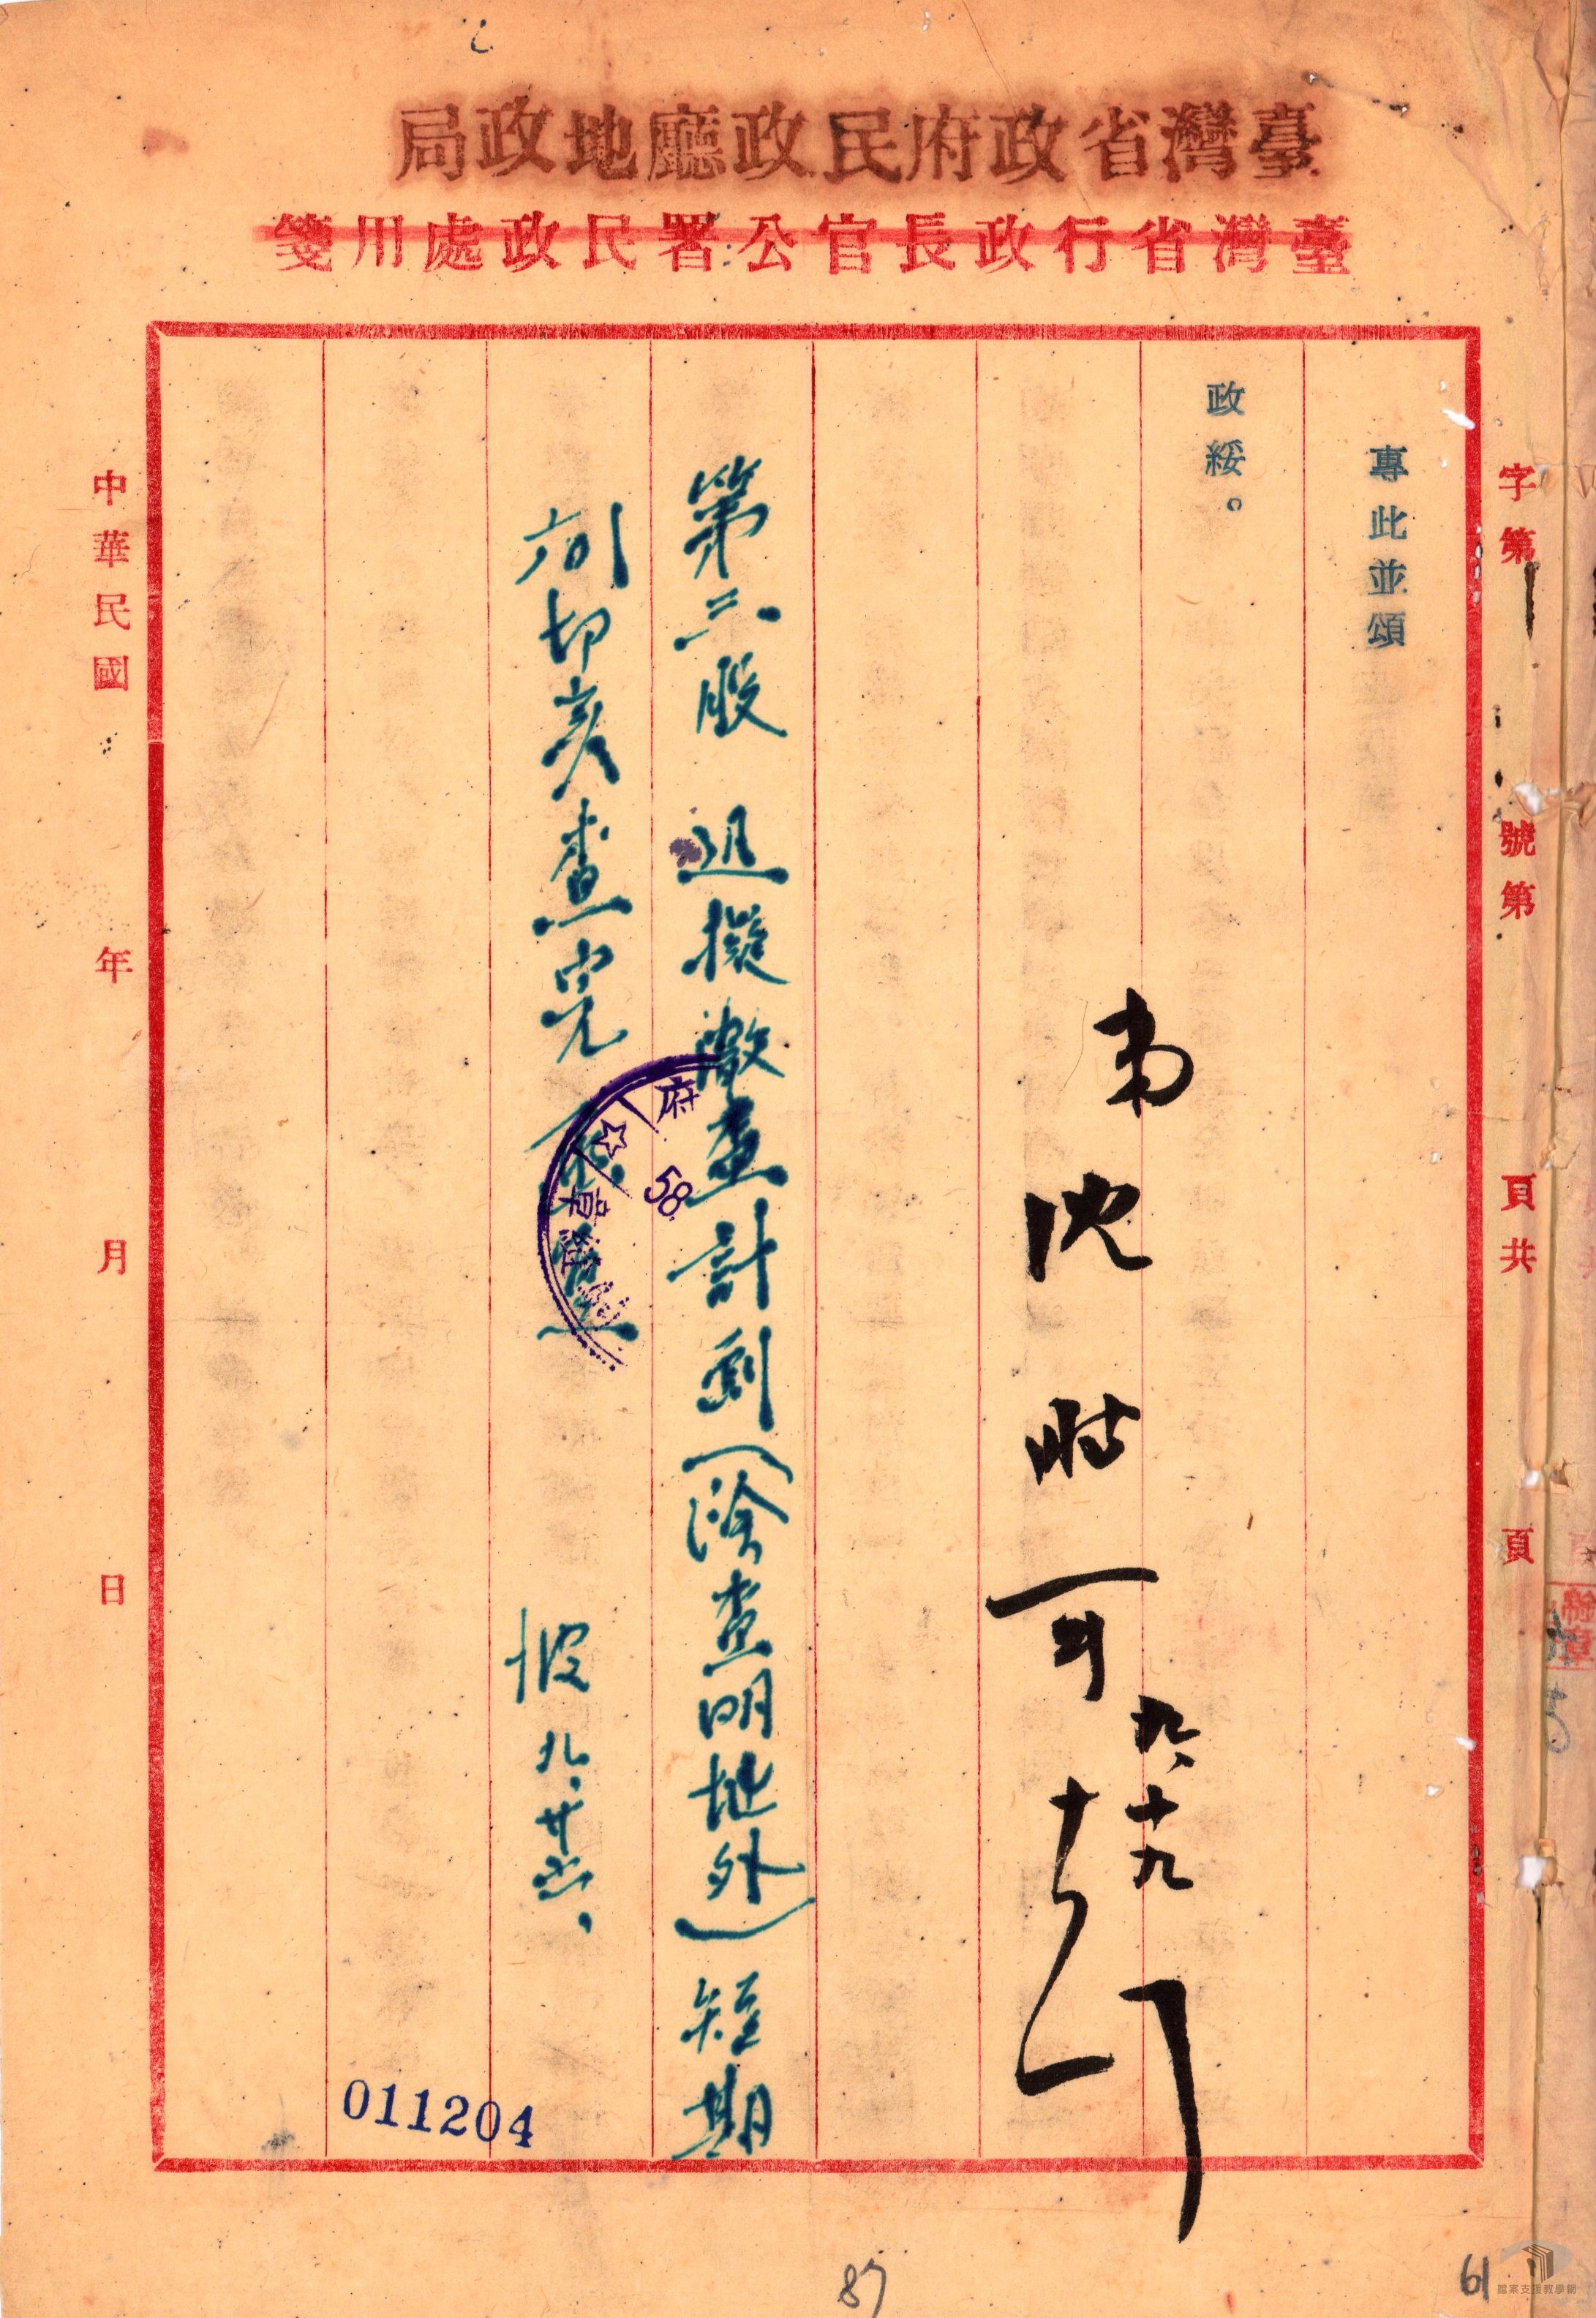 臺灣省政府民政廳地政局
臺灣省行政長官公署民政處用箋
字第 號第 頁共 頁
專此並頌
政綏。
弟沈時可
九、十九
第二股 迅擬澈查計劃(除查明地外)短期
內切實查完
九、廿六、
中華民國 年 月 日
府
58
011204
87
61
檔案支援教學網